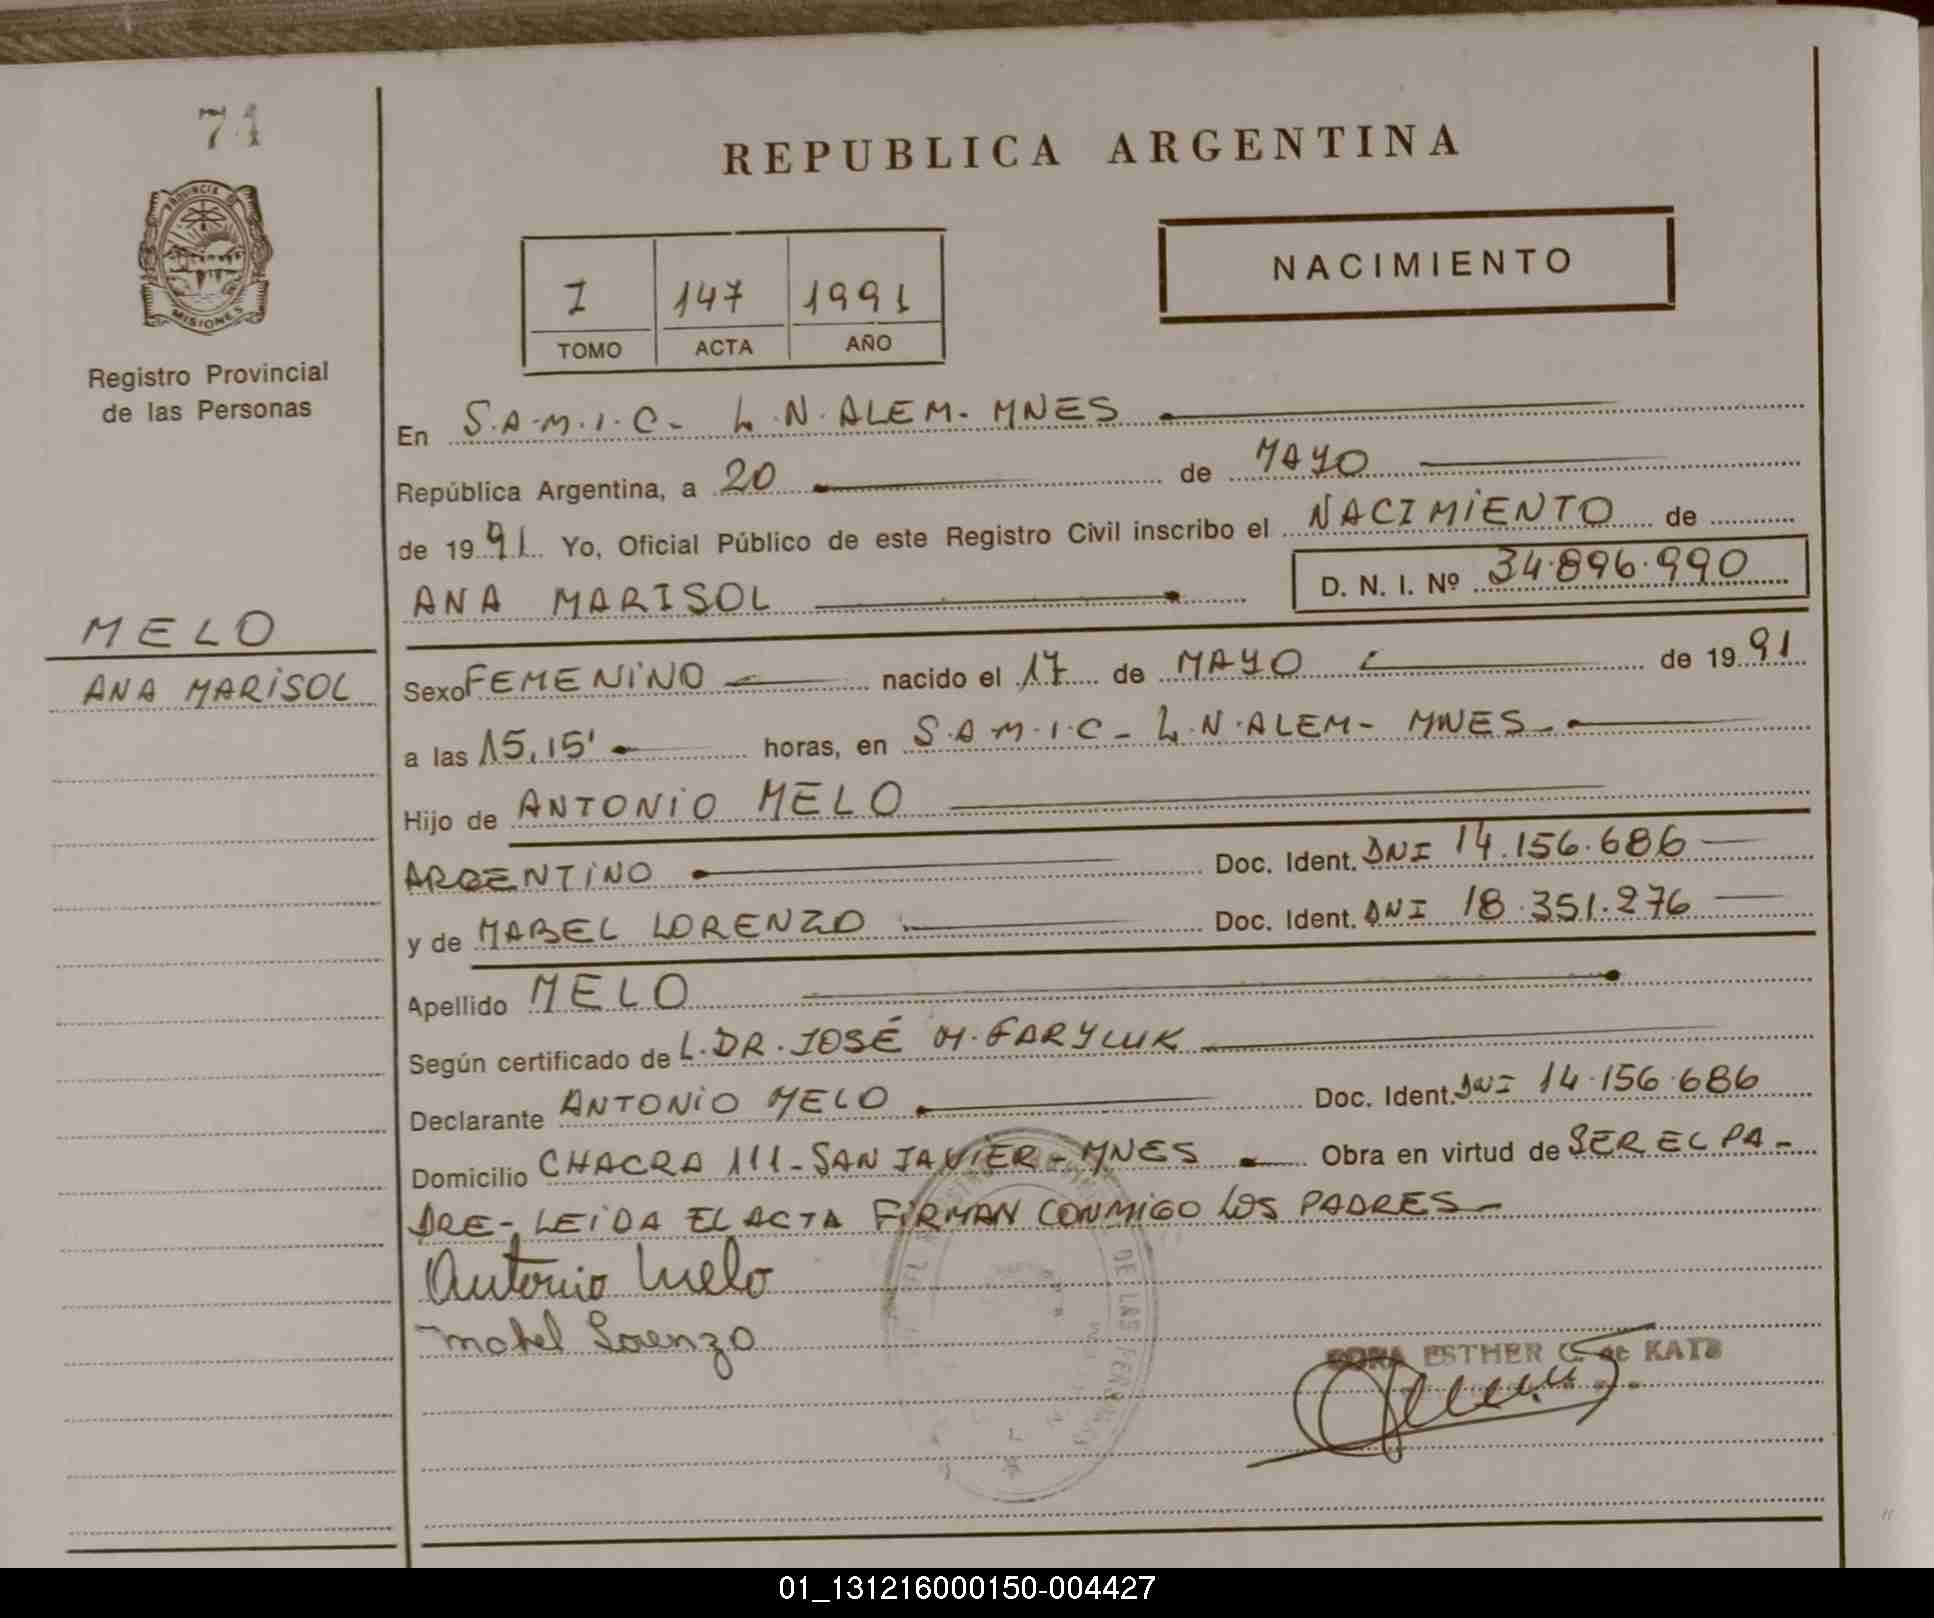 71
REPUBLICA ARGENTINA
PROVINCIA DE
MISIONES
Registro Provincial
de las Personas
I 147 1991
TOMO ACTA AÑO
NACIMIENTO
MELO
ANA MARISOL
En S.A.M.I.C- L.N.ALEM- MNES
República Argentina, a 20 de MAYO
de 1991 Yo, Oficial Público de este Registro Civil inscribo el NACIMIENTO de
ANA MARISOL D. N. I. Nº 34.896.990
Sexo FEMENINO nacido el 17 de MAYO de 1991
a las 15,15' horas, en S.A.M.I.C- L.N.ALEM- MNES-
Hijo de ANTONIO MELO
ARGENTINO Doc. Ident. DNI 14.156.686
y de MABEL LORENZO Doc. Ident. DNI 18.351.276
Apellido MELO
Según certificado de L.DR.JOSÉ M.FARYLUK
Declarante ANTONIO MELO Doc. Ident. DNI 14.156.686
Domicilio CHACRA 111-SAN JAVIER-MNES Obra en virtud de SER EL PA-
DRE-LEIDA EL ACTA FIRMAN CONMIGO LOS PADRES-
Antonio Melo
Mabel Lorenzo
ESTHER C. de KATZ
01_131216000150-004427